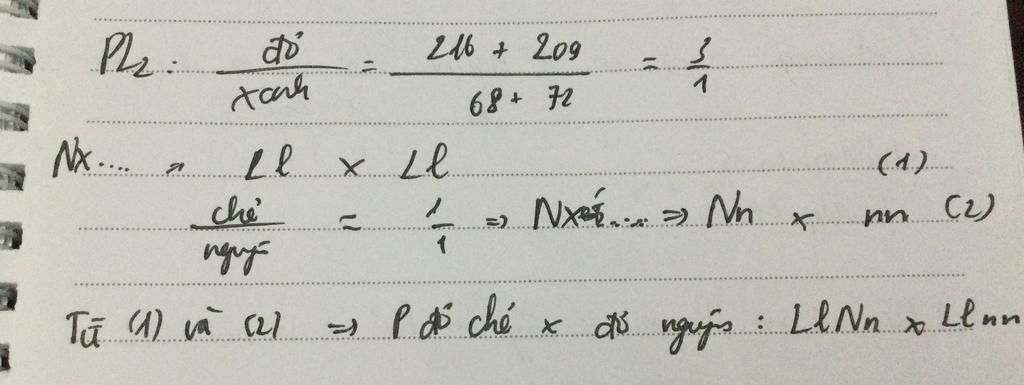 PL2: đỏ/xanh = (216 + 209)/(68 + 72) = 3/1
Nx.... => Ll x Ll (1)
chẻ/nguyên = 1/1 => Nx.... => Nn x nn (2)
Từ (1) và (2) => P đỏ chẻ x đỏ nguyên : LlNn x Llnn